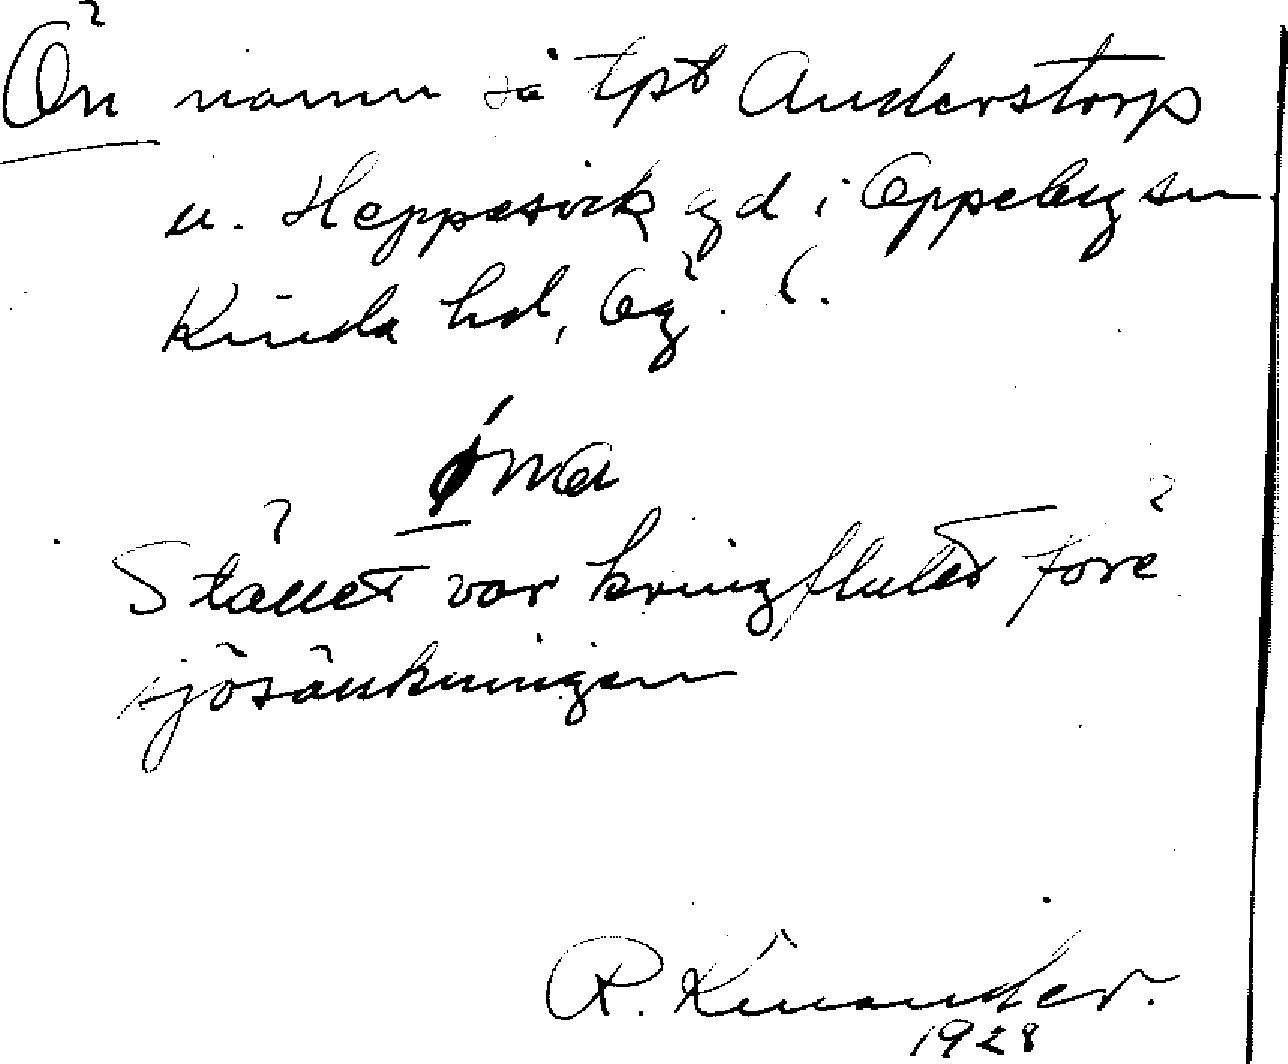 Ön namn på tpt Anderstorp
u. Heppesvik gd i Oppeby sn
Kinda hd, Ög. l.
Stället var kringflutet före
sjösänkningen
R. Kinander.
1928